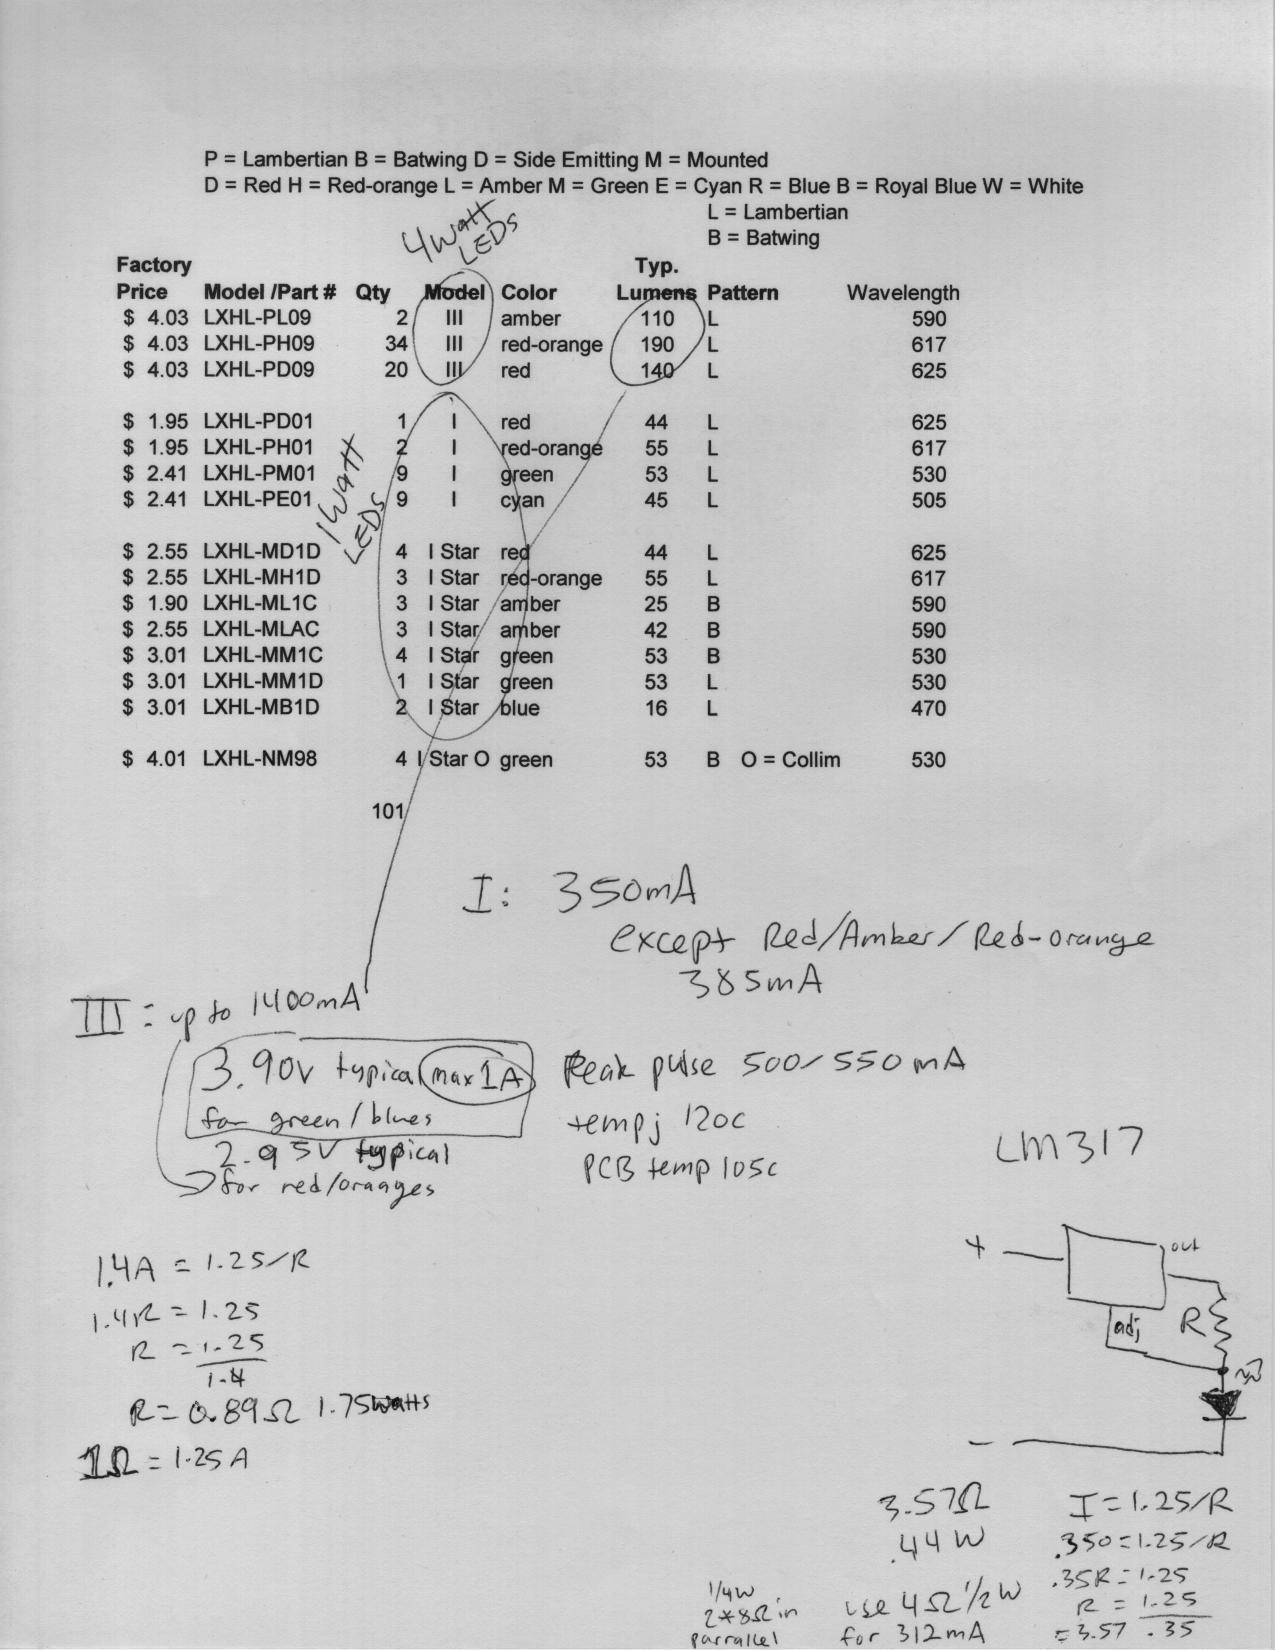 P = Lambertian B = Batwing D = Side Emitting M = Mounted
D = Red H = Red-orange L = Amber M = Green E = Cyan R = Blue B = Royal Blue W = White
L = Lambertian
B = Batwing
4 watt
LEDs
Factory Typ.
Price Model /Part # Qty Model Color Lumens Pattern Wavelength
$ 4.03 LXHL-PL09 2 III amber 110 L 590
$ 4.03 LXHL-PH09 34 III red-orange 190 L 617
$ 4.03 LXHL-PD09 20 III red 140 L 625
$ 1.95 LXHL-PD01 1 I red 44 L 625
$ 1.95 LXHL-PH01 2 I red-orange 55 L 617
$ 2.41 LXHL-PM01 9 I green 53 L 530
$ 2.41 LXHL-PE01 9 I cyan 45 L 505
1 Watt
LEDs
$ 2.55 LXHL-MD1D 4 I Star red 44 L 625
$ 2.55 LXHL-MH1D 3 I Star red-orange 55 L 617
$ 1.90 LXHL-ML1C 3 I Star amber 25 B 590
$ 2.55 LXHL-MLAC 3 I Star amber 42 B 590
$ 3.01 LXHL-MM1C 4 I Star green 53 B 530
$ 3.01 LXHL-MM1D 1 I Star green 53 L 530
$ 3.01 LXHL-MB1D 2 I Star blue 16 L 470
$ 4.01 LXHL-NM98 4 I Star O green 53 B O = Collim 530
101
I: 350mA
except Red/Amber/Red-orange
385mA
III: up to 1400mA
3.90v typical max 1A
for green/blues
2.95V typical
for red/oranges
Peak pulse 500/550 mA
tempj 120c
PCB temp 105c
LM317
+ out
adj R
-
1.4A = 1.25/R
1.4R = 1.25
R = 1.25
1.4
R = 0.89Ω 1.75watts
1Ω = 1.25 A
3.57Ω
.44 W
I = 1.25/R
.350 = 1.25/R
.35R = 1.25
R = 1.25
= 3.57 .35
use 4Ω 1/2 W
for 312mA
1/4W
2*8Ω in
parrallel